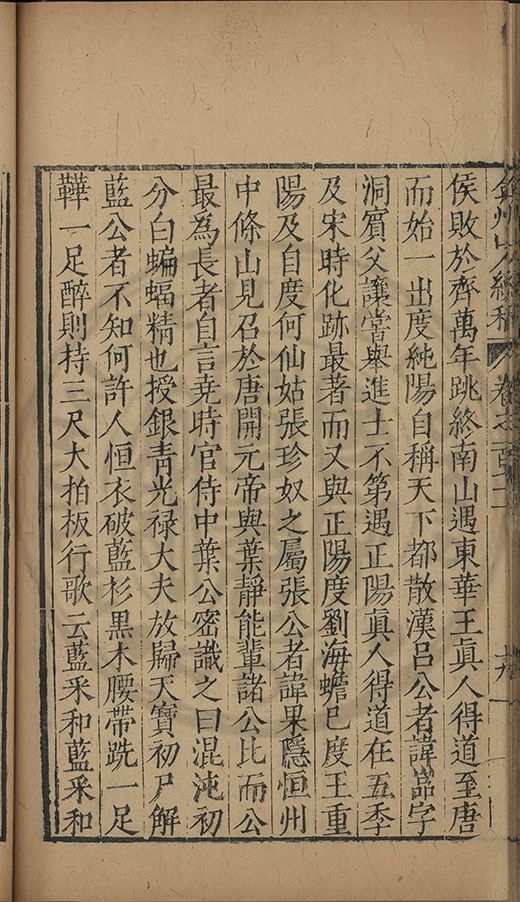 侯敗於齊萬年跳終南山遇東華王眞人得道至唐
而始一出度純陽自稱天下都散漢呂公者諱嵓字
洞賓父讓嘗舉進士不第遇正陽眞人得道在五季
及宋時化跡最著而又與正陽度劉海蟾已度王重
陽及自度何仙姑張珍奴之屬張公者諱果隱恒州
中條山見召於唐開元帝與葉靜能輩諸公比而公
最為長者自言堯時官侍中葉公密識之曰混沌初
分白蝙蝠精也授銀青光禄大夫放歸天寶初尸解
藍公者不知何許人恒衣破藍衫黒木腰帶跣一足
鞾一足醉則持三尺大拍板行歌云藍采和藍采和